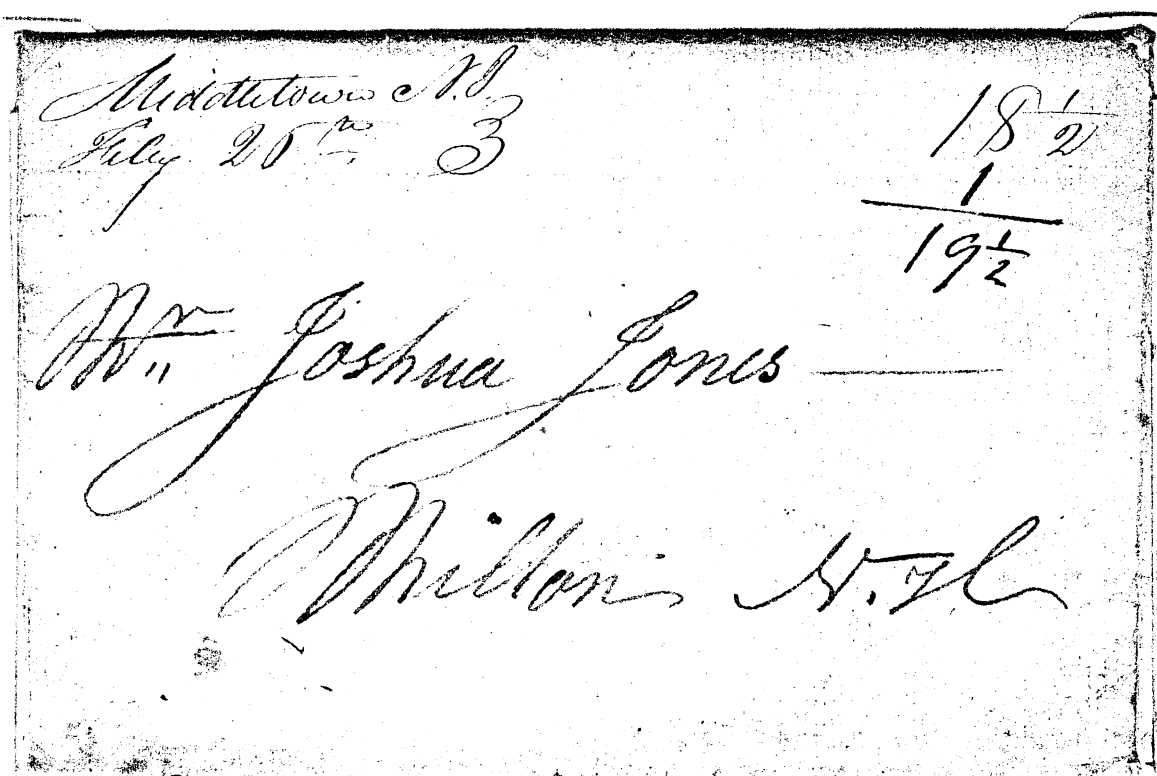 Middletown N.J.
Feby 3
18 1/2
1
19 1/2
Mr Joshua Jones —
Milton N.H